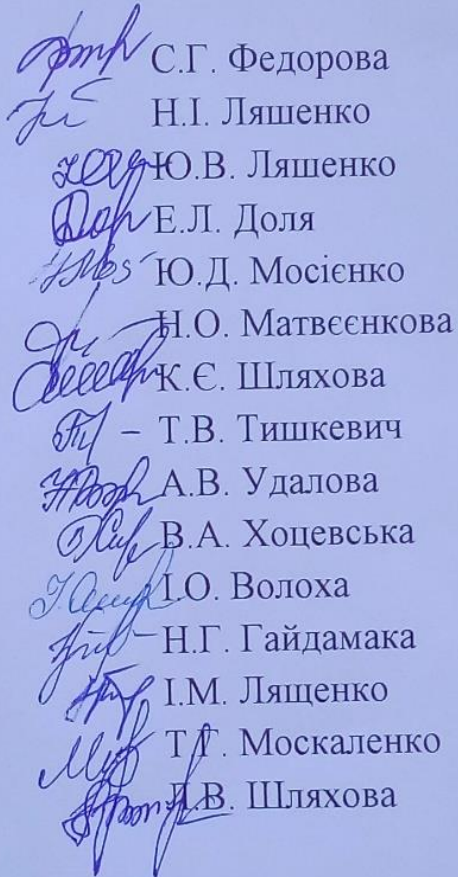 С.Г. Федорова
Н.І. Ляшенко
Ю.В. Ляшенко
Е.Л. Доля
Ю.Д. Мосієнко
Н.О. Матвєєнкова
К.Є. Шляхова
– Т.В. Тишкевич
А.В. Удалова
В.А. Хоцевська
І.О. Волоха
Н.Г. Гайдамака
І.М. Лященко
Т.Г. Москаленко
Шляхова